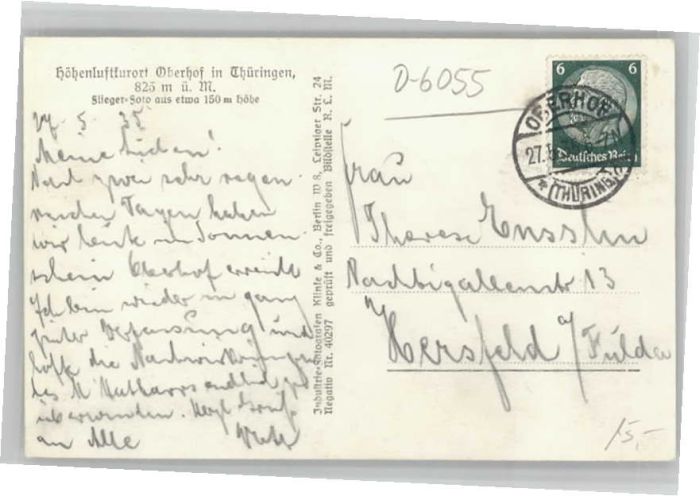 Höhenluftkurort Oberhof in Thüringen,
825 m ü. M.
Flieger-Foto aus etwa 150 m Höhe
27. 5. 35
Meine Lieben!
Nach zwei sehr regen-
reichen Tagen haben
wir heute im Sonnen-
schein Oberhof erreicht
Ich bin wieder in ganz
guter Verfassung und
hoffe die Nachwirkungen
des Katharrs endlich zu
überwinden. Herzl. Grüße
an Alle
Industrie-Fotografen Klinke & Co., Berlin W 8, Leipziger Str. 24
Negativ Nr. 40297 geprüft und freigegeben Bildstelle R. L. M.
D-6055
6 6
Deutsches Reich
OBERHOF
27.
(THÜRING.)
Frau
Therese Ensslin
Nachtigallenstr 13
Hersfeld a/Fulda
15,-